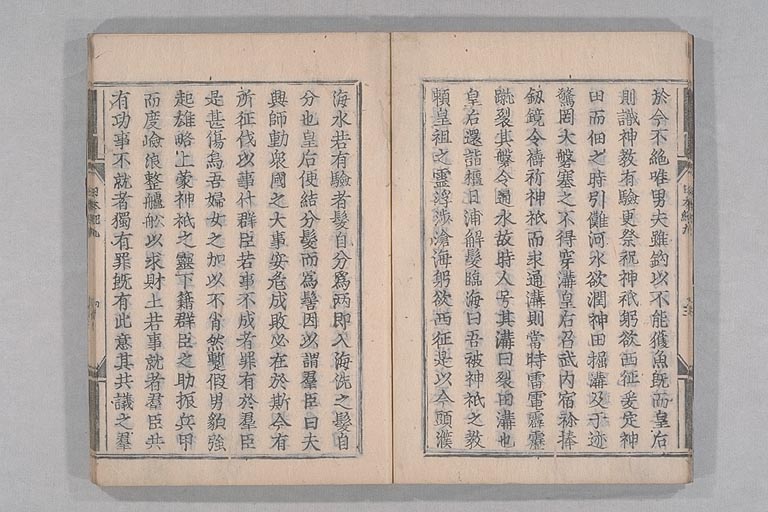 於今不絶唯男夫雖釣以不能獲魚既而皇后
則識神教有驗更祭祝神祇躬欲西征爰定神
田而佃之時引儺河水欲潤神田掘溝及于迹
驚岡大磐塞之不得穿溝皇后召武内宿祢捧
釼鏡令禱祈神祇而求通溝則當時雷電霹靂
蹴裂其磐令通水故時人号其溝曰裂田溝也
皇后還詣橿日浦解髮臨海曰吾被神祇之教
頼皇祖之靈浮渉滄海躬欲西征是以今頭濮
海水若有驗者髮自分為兩即入海洗之髮自
分也皇后便結分髮而為髻因以謂羣臣曰夫
興師動衆國之大事安危成敗必在於斯今有
所征伐以事付群臣若事不成者罪有於羣臣
是甚傷焉吾婦女之加以不肖然蹔假男貌強
起雄略上蒙神祇之靈下籍群臣之助振兵甲
而度嶮浪整艫舩以求財土若事就者羣臣共
有功事不就者獨有罪既有此意其共議之羣
日本紀九